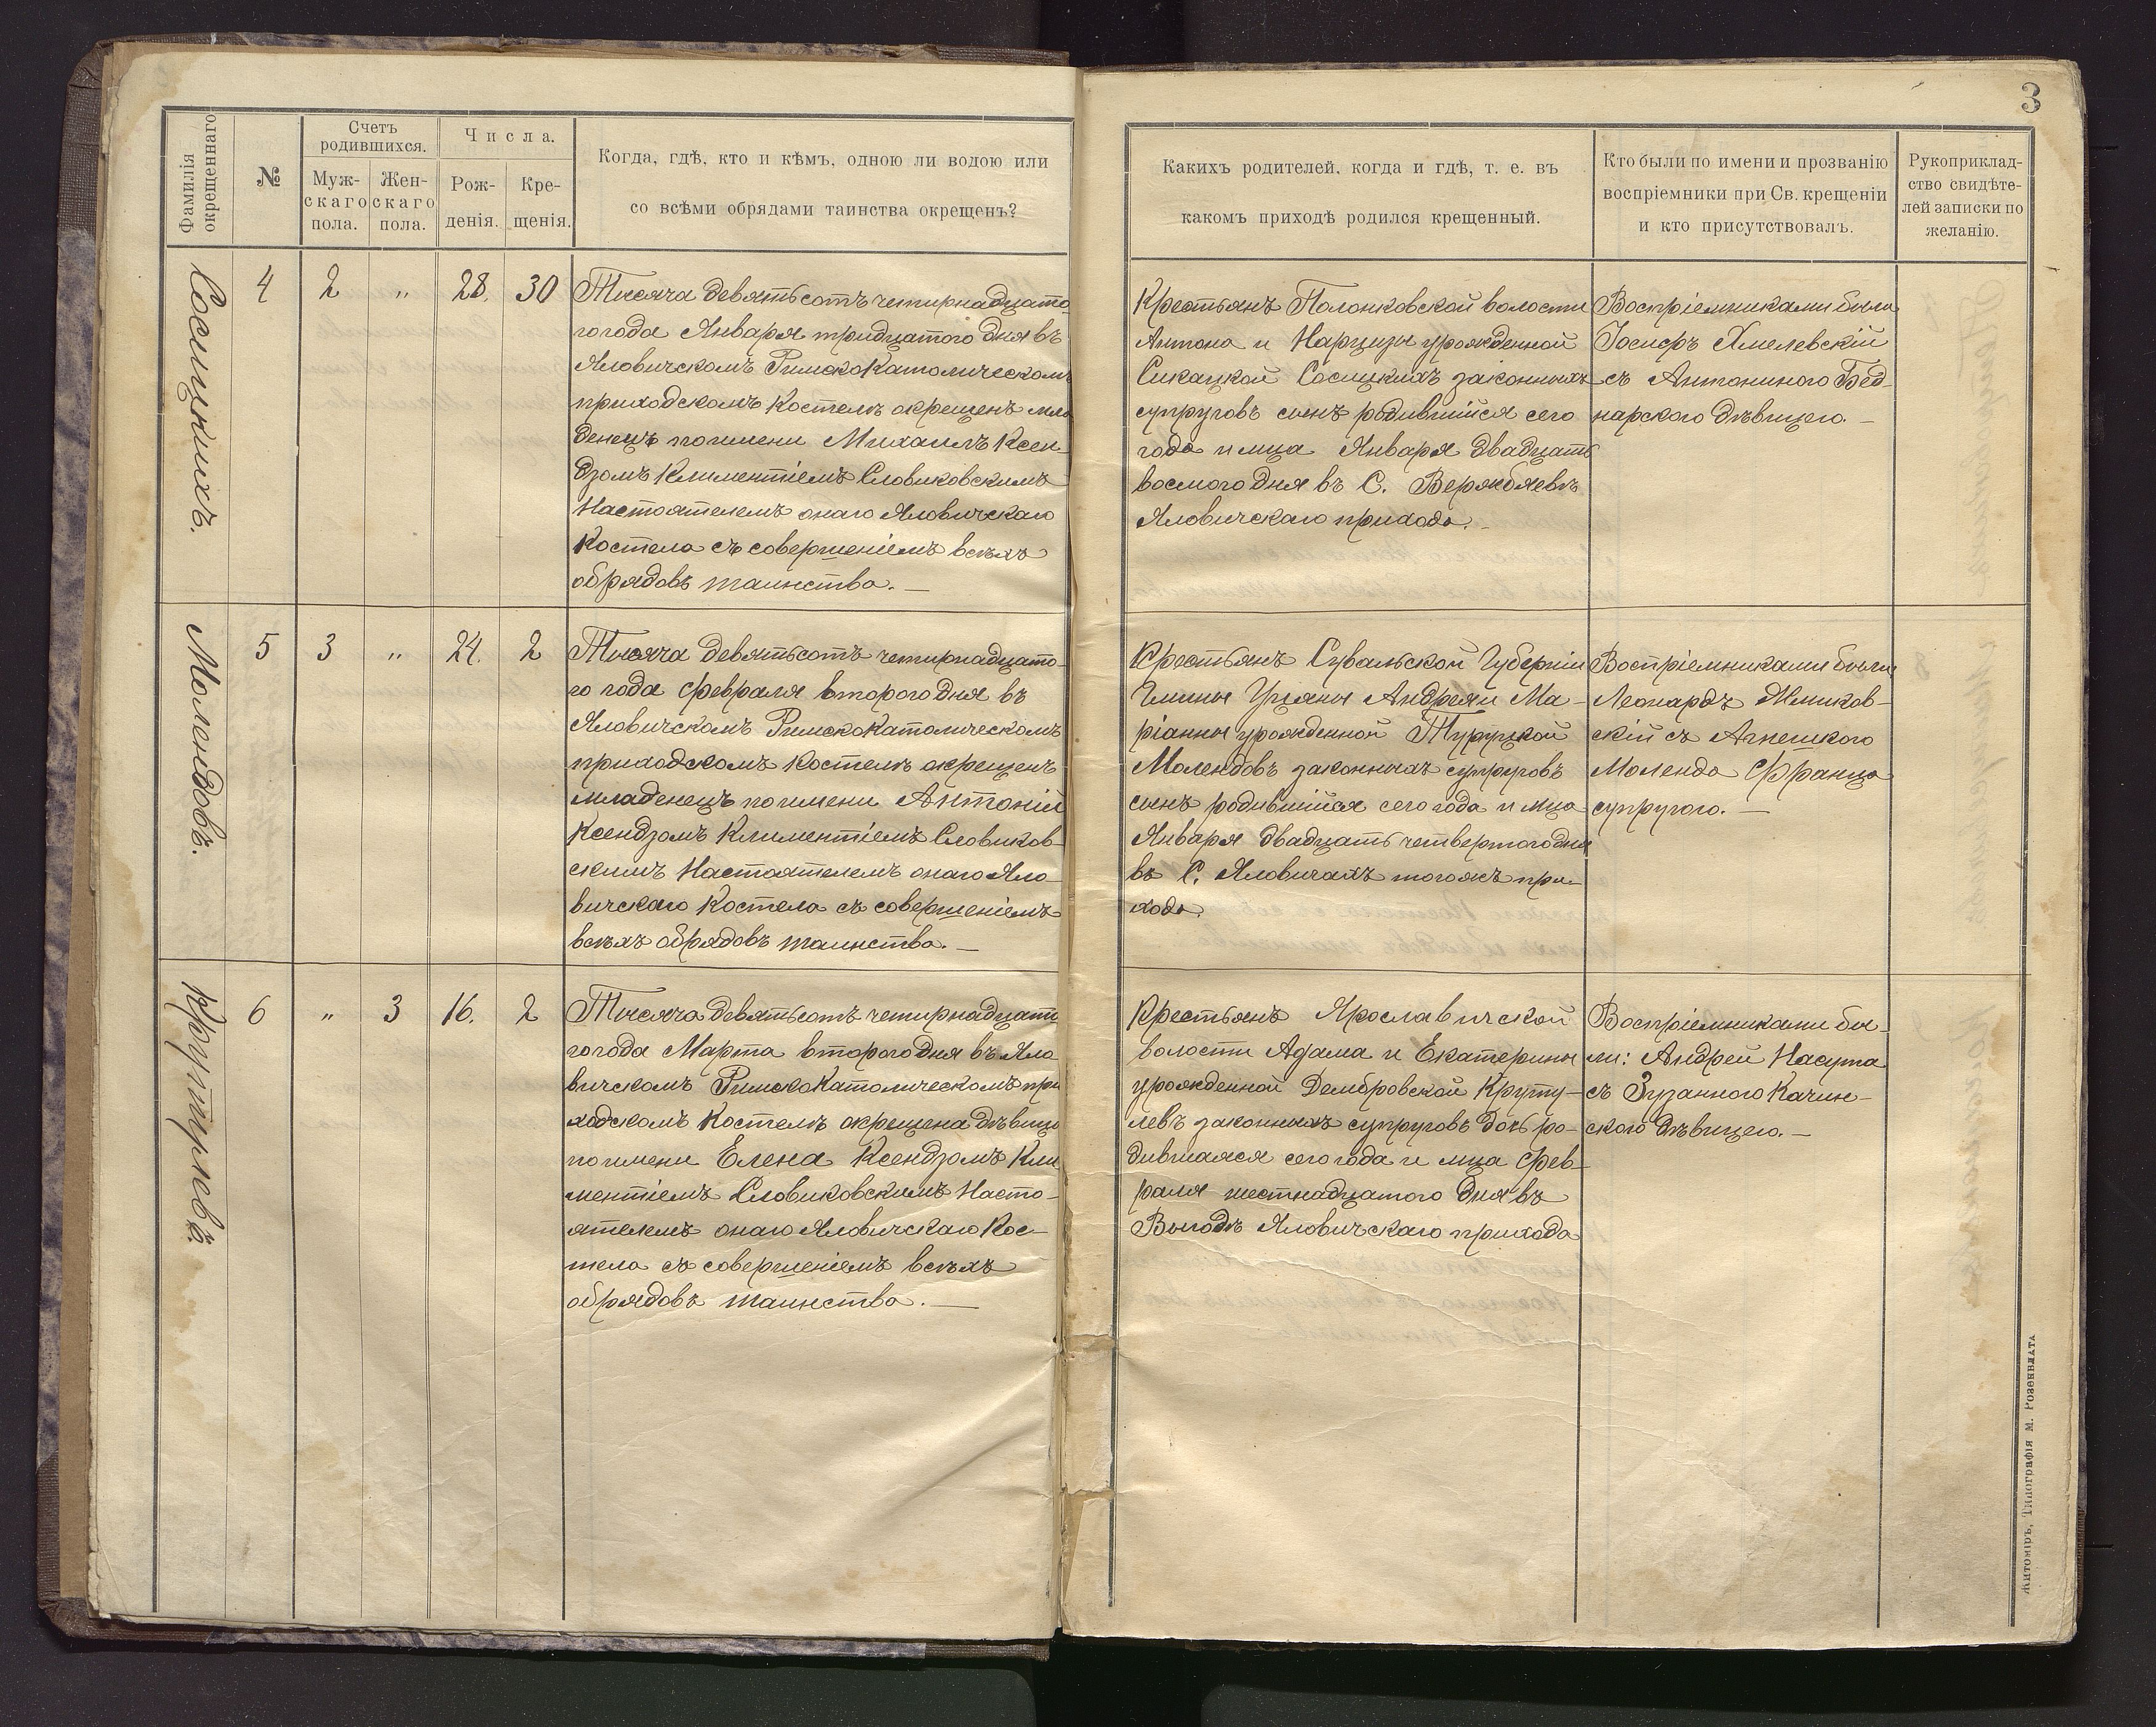 3
Фамилія окрещеннаго
№
Счетъ родившихся.
Мужскаго пола.
Женскаго пола.
Числа.
Рожденія.
Крещенія.
Когда, гдѣ, кто и кѣмъ, одною ли водою или
со всѣми обрядами таинства окрещенъ?
Какихъ родителей, когда и гдѣ, т. е. въ
какомъ приходѣ родился крещенный.
Кто были по имени и прозванію
воспріемники при Св. крещеніи
и кто присутствовалъ.
Рукоприклад-
ство свидѣте-
лей записки по
желанію.
Сосицкихъ.
4 2 " 28. 30
Тисяча девятьсотъ четирнадцато
го года Января тридцатого дня въ
Яловичскомъ Римско Католическомъ
приходскомъ Костелѣ окрещенъ мла
денецъ по имени Михаилъ Ксен
дзомъ Климентіемъ Словиковскимъ
Настоятелемъ онаго Яловичскаго
Костела съ совершеніемъ всѣхъ
обрядовъ таинства. —
Крестьянъ Полонковской волости
Антона и Нарцизы урожденной
Сикацкой Сосицкихъ законныхъ
супруговъ сынъ родившійся сего
года и мца Января двадцать
восмого дня въ С. Верхбяевѣ
Яловичскаго прихода. -
Воспріемниками были
Іосифъ Хмелевскій
съ Антониною Бед-
нарскою дѣвицею. —
Молендовъ.
5 3 " 24. 2
Тысяча девятьсотъ четирнадцато-
го года февраля второго дня въ
Яловичскомъ Римско Католическомъ
приходскомъ Костелѣ окрещенъ
младенецъ по имени Антоній
Ксендзомъ Климентіемъ Словиков-
скимъ Настоятелемъ онаго Яло
вичскаго Костела съ совершеніемъ
всѣхъ обрядовъ таинства. —
Крестьянъ Сувальской Губерніи
Гмины Андрея и Ма-
ріанны урожденной Туруцкой
Молендовъ законныхъ супруговъ
сынъ родившійся сего года и мца
Января двадцать четвертого дня
въ С. Яловичахъ тогожъ при-
хода.
Воспріемниками были
Леонардъ
скій съ Агнешкою
Моленда Франца
супругою. —
Крутулевъ.
6 " 3 16. 2
Тысяча девятьсотъ четирнадцати
го года Марта второго дня въ Яло
вичскомъ Римско Католическомъ при
ходскомъ Костелѣ окрещена дѣвица
по имени Елена Ксендзомъ Кли
ментіемъ Словиковскимъ Насто-
ятелемъ онаго Яловичскаго Кос-
тела съ совершеніемъ всѣхъ
обрядовъ таинства. —
Крестьянъ Ярославичской
волости Адама и Екатерины
урожденной Домбровской Круту-
левъ законныхъ супруговъ дочь ро-
дившаяся сего года и мца Фев-
раля шестнадцатого дня въ
Выгодѣ Яловичскаго прихода
Воспріемниками бы-
ли: Андрей Насута
съ Зузанною Качин-
скою дѣвицею. —
Житоміръ, Типографія М. Розенблата